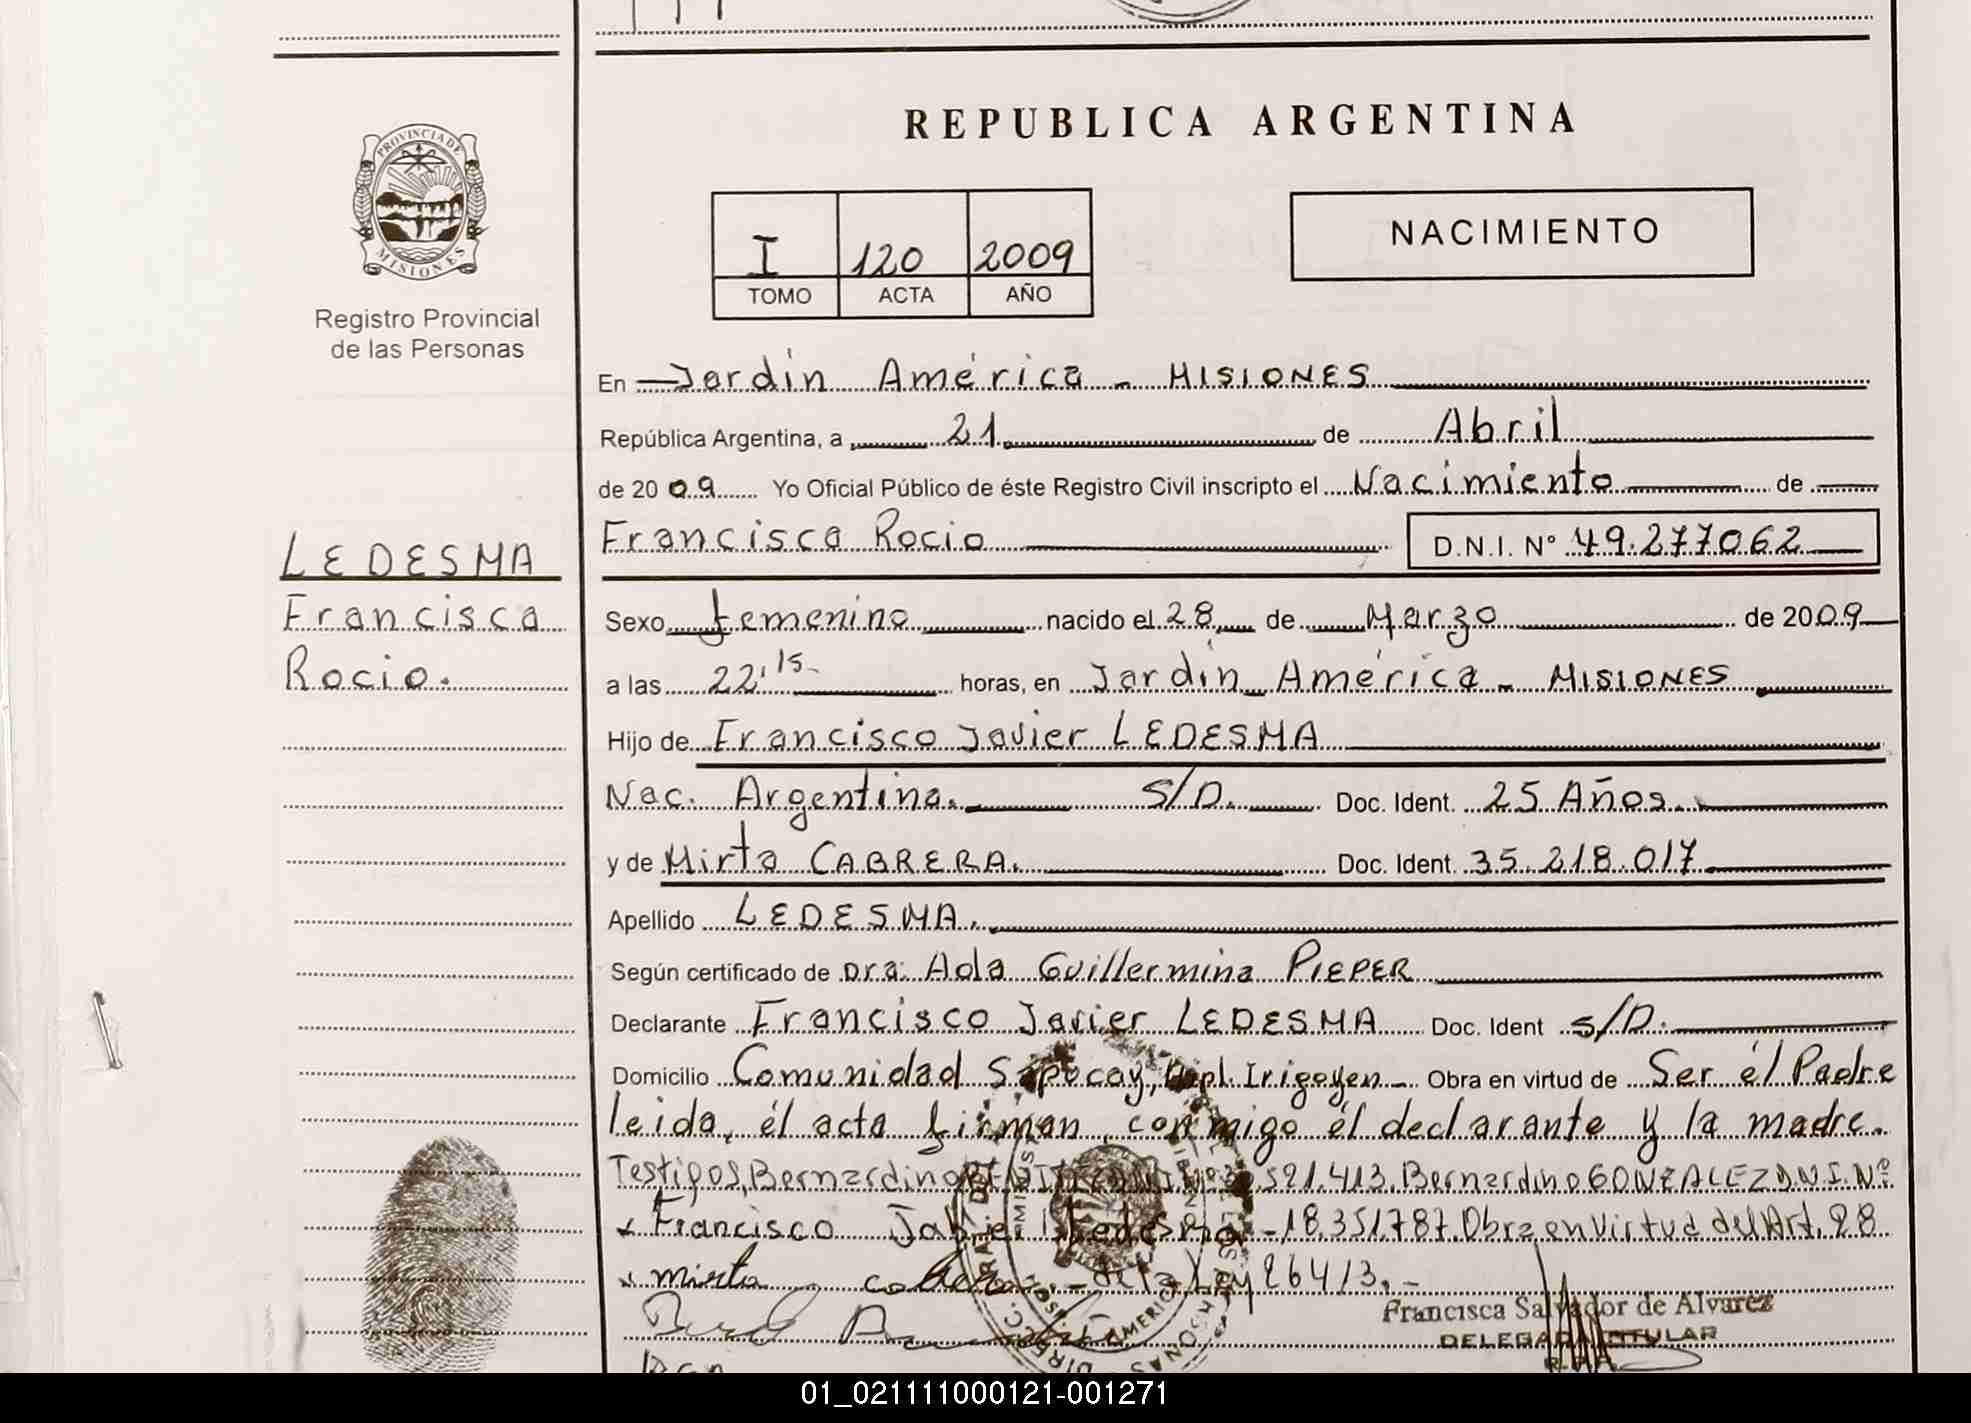 REPUBLICA ARGENTINA
PROVINCIA DE
MISIONES
Registro Provincial
de las Personas
I 120 2009
TOMO ACTA AÑO
NACIMIENTO
En Jardin América - MISIONES
República Argentina, a 21 de Abril
de 2009 Yo Oficial Público de éste Registro Civil inscripto el Nacimiento de
Francisca Rocio D.N.I. N° 49.277062
LEDESMA
Francisca
Rocio.
Sexo femenino nacido el 28 de Marzo de 2009
a las 22,15 horas, en Jardin América - MISIONES
Hijo de Francisco Javier LEDESMA
Nac. Argentina. S/D. Doc. Ident. 25 Años.
y de Mirta CABRERA. Doc. Ident. 35.218.017
Apellido LEDESMA.
Según certificado de Dra: Ada Guillermina PIEPER
Declarante Francisco Javier LEDESMA Doc. Ident S/D.
Domicilio Comunidad Sapucay, Irigoyen - Obra en virtud de Ser él Padre
leida, él acta firman conmigo él declarante y la madre.
Testigos, Bernardino 521.413. Bernardino GONZALEZ D.N.I. Nº
x Francisco Ledesma - 18.351.787. Obra en Virtud del Art. 28
x mirta de la Ley 26413. -
Francisca Salvador de Alvarez
DELEGADA TITULAR
R.P.P.
01_021111000121-001271